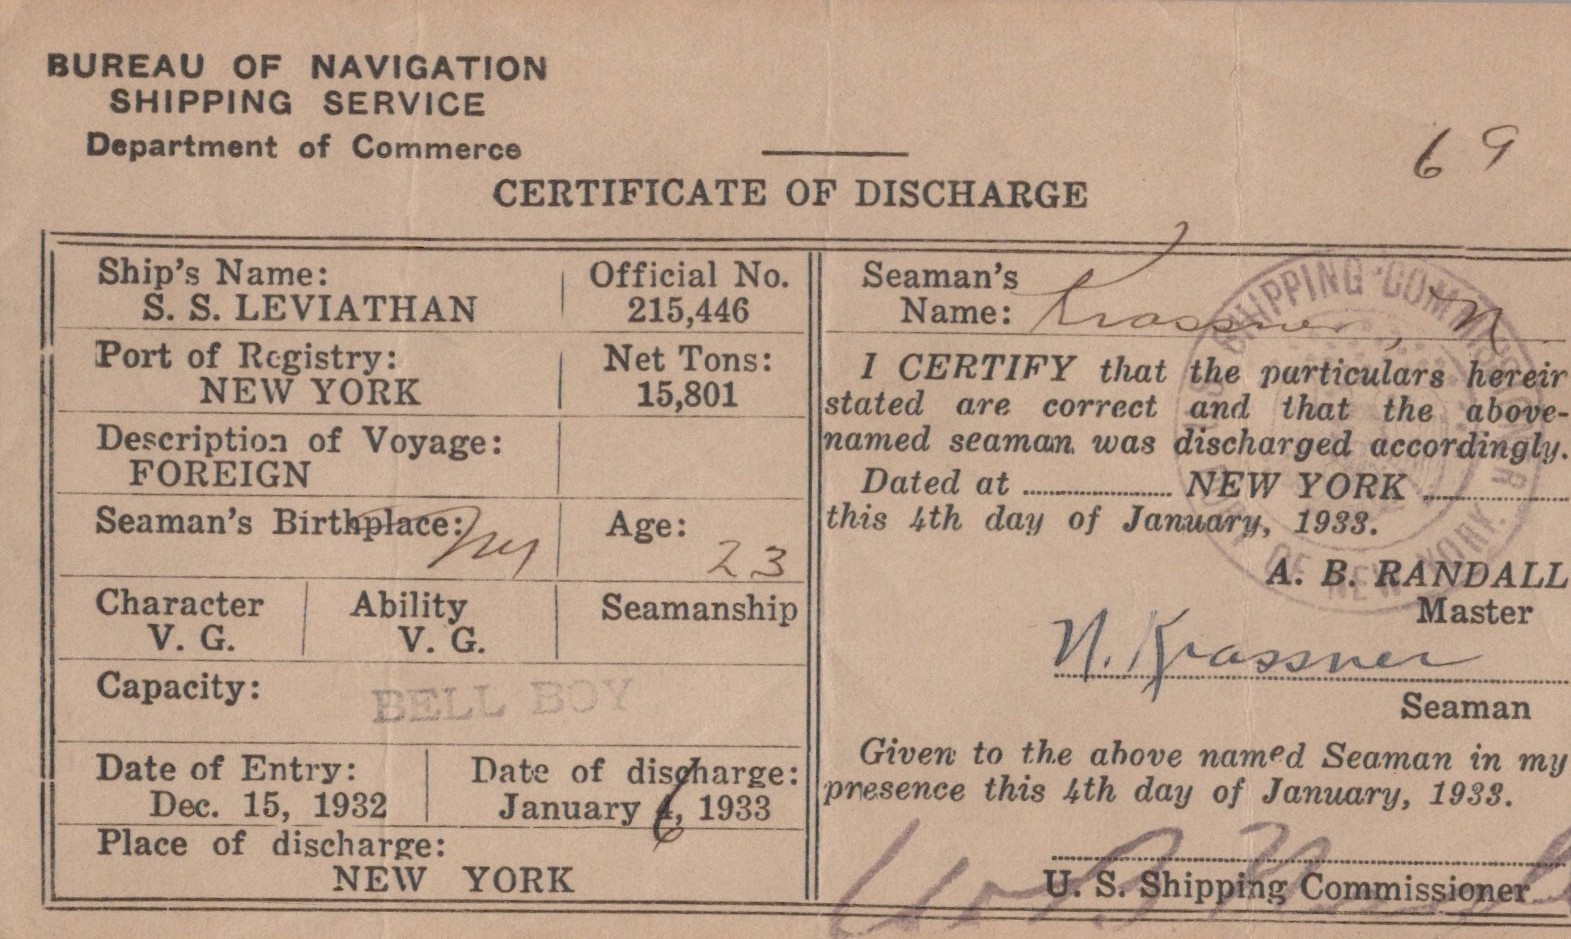 BUREAU OF NAVIGATION
SHIPPING SERVICE
Department of Commerce
69
CERTIFICATE OF DISCHARGE
Ship's Name:
S. S. LEVIATHAN
Official No.
215,446
Port of Registry:
NEW YORK
Net Tons:
15,801
Description of Voyage:
FOREIGN
Seaman's Birthplace:
NY
Age:
23
Character
V. G.
Ability
V. G.
Seamanship
Capacity:
BELL BOY
Date of Entry:
Dec. 15, 1932
Date of discharge:
January 6, 1933
Place of discharge:
NEW YORK
Seaman's
Name: Krassner, N
I CERTIFY that the particulars herein
stated are correct and that the above-
named seaman was discharged accordingly.
Dated at NEW YORK
this 4th day of January, 1933.
A. B. RANDALL
Master
N. Krassner
Seaman
Given to the above named Seaman in my
presence this 4th day of January, 1933.
U. S. Shipping Commissioner
U.S. SHIPPING COMMISSIONER
PORT OF NEW YORK.